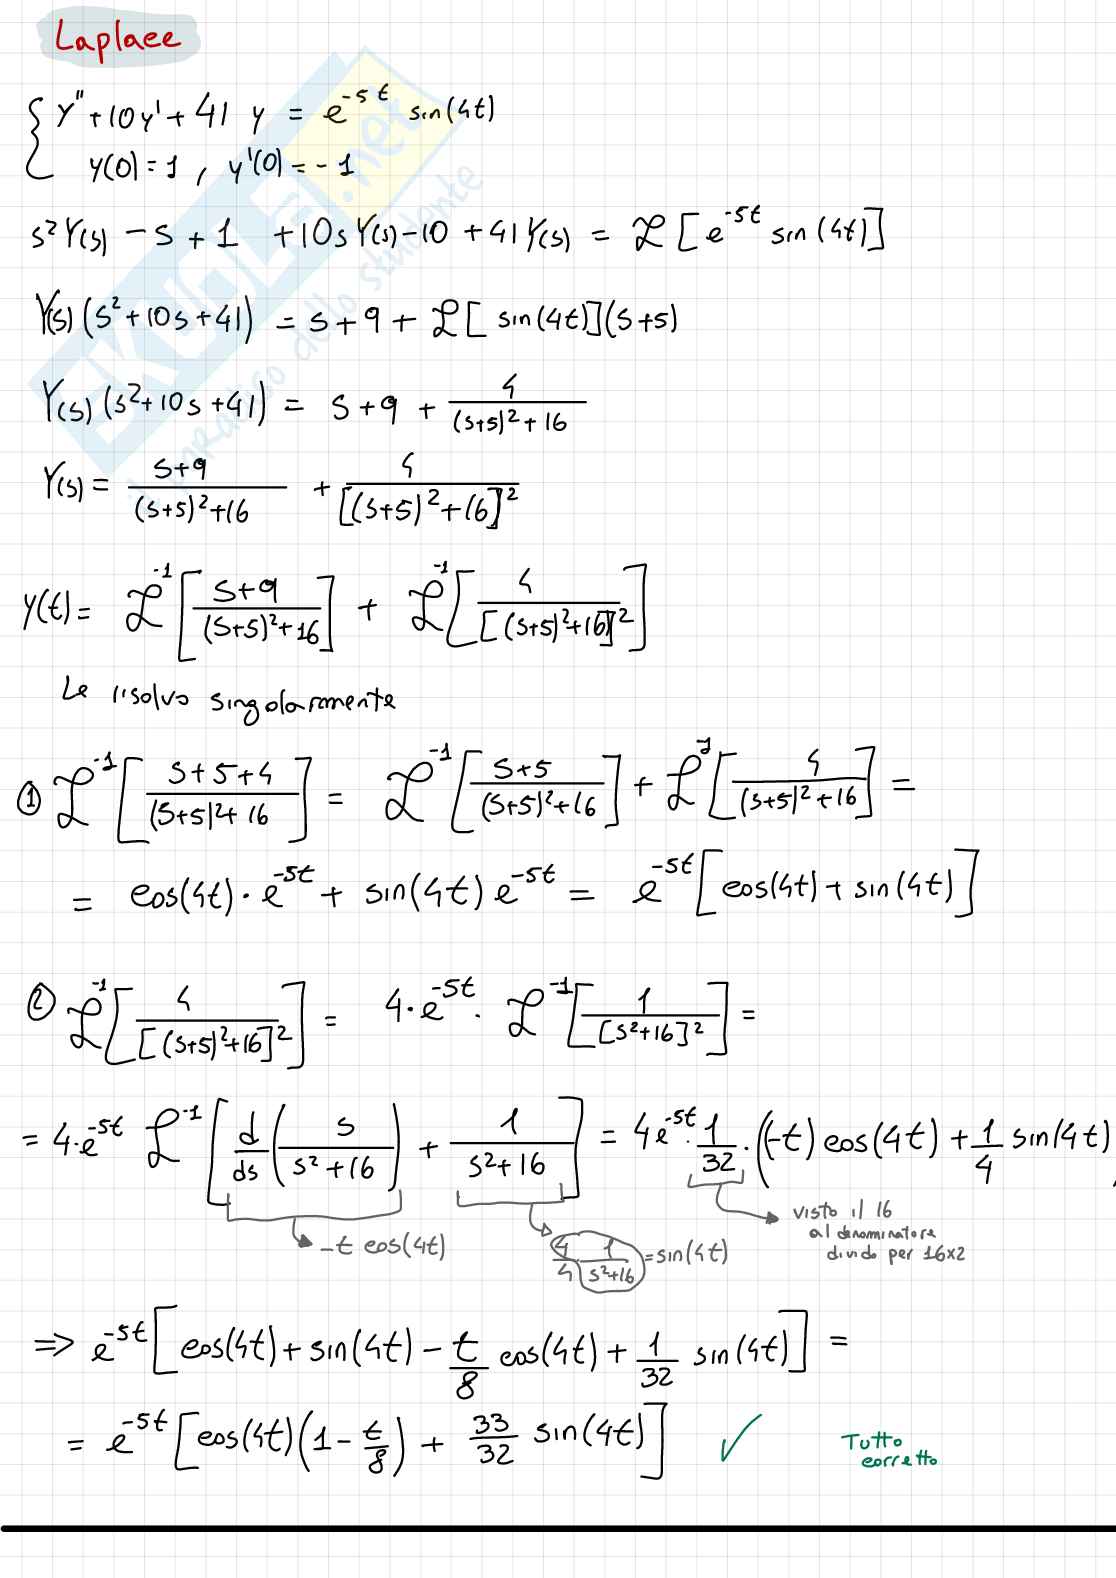 Laplace
{ y'' + 10y' + 41 y = e^{-5t} sin(4t)
y(0) = 1 , y'(0) = - 1
s² Y(s) - s + 1 + 10s Y(s) - 10 + 41 Y(s) = ℒ [ e^{-5t} sin(4t) ]
Y(s) (s² + 10s + 41) = s + 9 + ℒ [ sin(4t) ] (s+5)
Y(s) (s² + 10s + 41) = s + 9 + 4/((s+5)² + 16)
Y(s) = (s+9)/((s+5)² + 16) + 4/[(s+5)² + 16]²
y(t) = ℒ^{-1} [ (s+9)/((s+5)² + 16) ] + ℒ^{-1} [ 4/[(s+5)² + 16]² ]
Le risolvo singolarmente
① ℒ^{-1} [ (s+5+4)/((s+5)² + 16) ] = ℒ^{-1} [ (s+5)/((s+5)² + 16) ] + ℒ^{-1} [ 4/((s+5)² + 16) ] =
= cos(4t) · e^{-5t} + sin(4t) e^{-5t} = e^{-5t} [ cos(4t) + sin(4t) ]
② ℒ^{-1} [ 4/[(s+5)² + 16]² ] = 4 · e^{-5t} · ℒ^{-1} [ 1/[s² + 16]² ] =
= 4 · e^{-5t} ℒ^{-1} [ d/ds ( s/(s² + 16) ) + 1/(s² + 16) ] = 4 e^{-5t} · 1/32 · ( (-t) cos(4t) + 1/4 sin(4t)
-t cos(4t)
4/4 1/(s²+16) = sin(4t)
visto il 16
al denominatore
divido per 16x2
=> e^{-5t} [ cos(4t) + sin(4t) - t/8 cos(4t) + 1/32 sin(4t) ] =
= e^{-5t} [ cos(4t) (1 - t/8) + 33/32 sin(4t) ] ✓
Tutto
corretto
SKUOLA.net
il paradiso dello studente